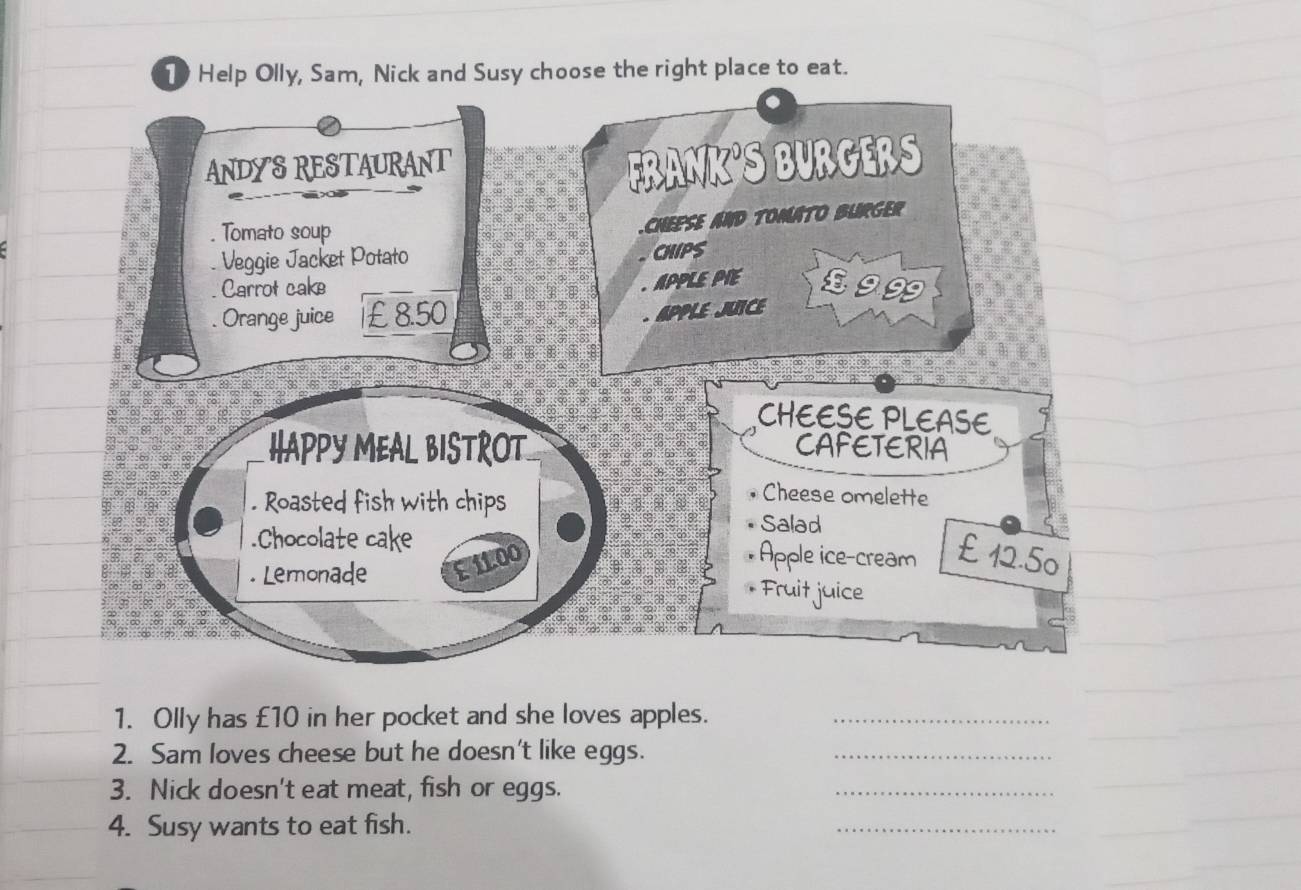 1 Help Olly, Sam, Nick and Susy choose the right place to eat.
ANDY'S RESTAURANT
. Tomato soup
. Veggie Jacket Potato
. Carrot cake
. Orange juice £ 8.50
FRANK'S BURGERS
.CHEESE AND TOMATO BURGER
. CHIPS
. APPLE PIE
. APPLE JUICE
£ 9.99
HAPPY MEAL BISTROT
. Roasted fish with chips
.Chocolate cake
. Lemonade
£ 11.00
CHEESE PLEASE
CAFETERIA
• Cheese omelette
• Salad
• Apple ice-cream
• Fruit juice
£ 12.50
1. Olly has £10 in her pocket and she loves apples.
2. Sam loves cheese but he doesn't like eggs.
3. Nick doesn't eat meat, fish or eggs.
4. Susy wants to eat fish.